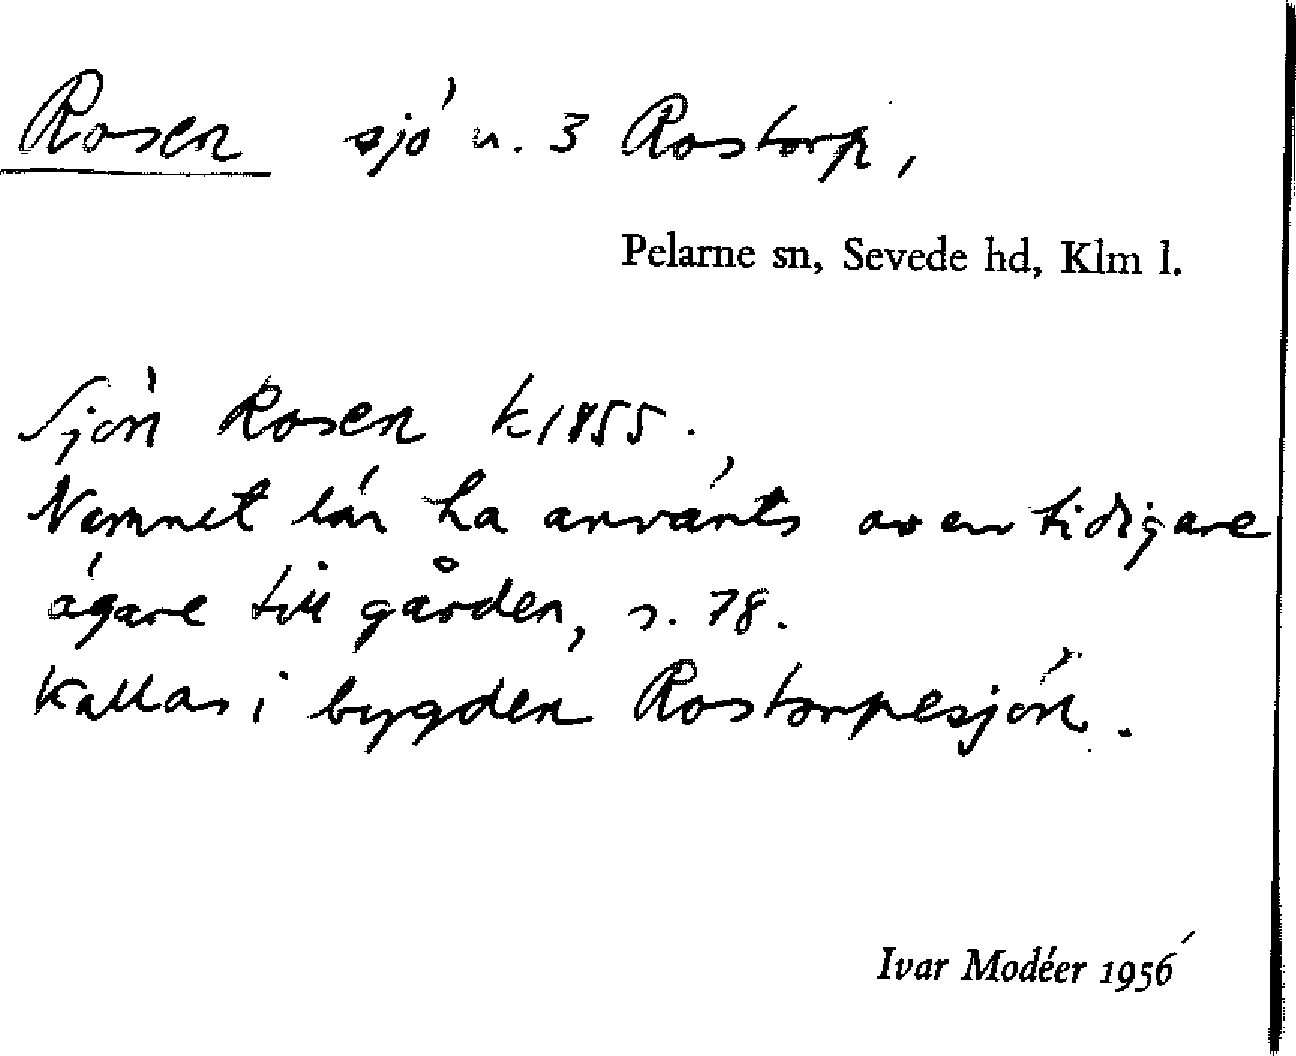 Rosen sjö u. 3 Rostorp,
Pelarne sn, Sevede hd, Klm l.
Sjön Rosen k 1855.
Namnet lär ha använts av en tidigare
ägare till gården, s. 78.
Kallas i bygden Rostorpesjön.
Ivar Modéer 1956